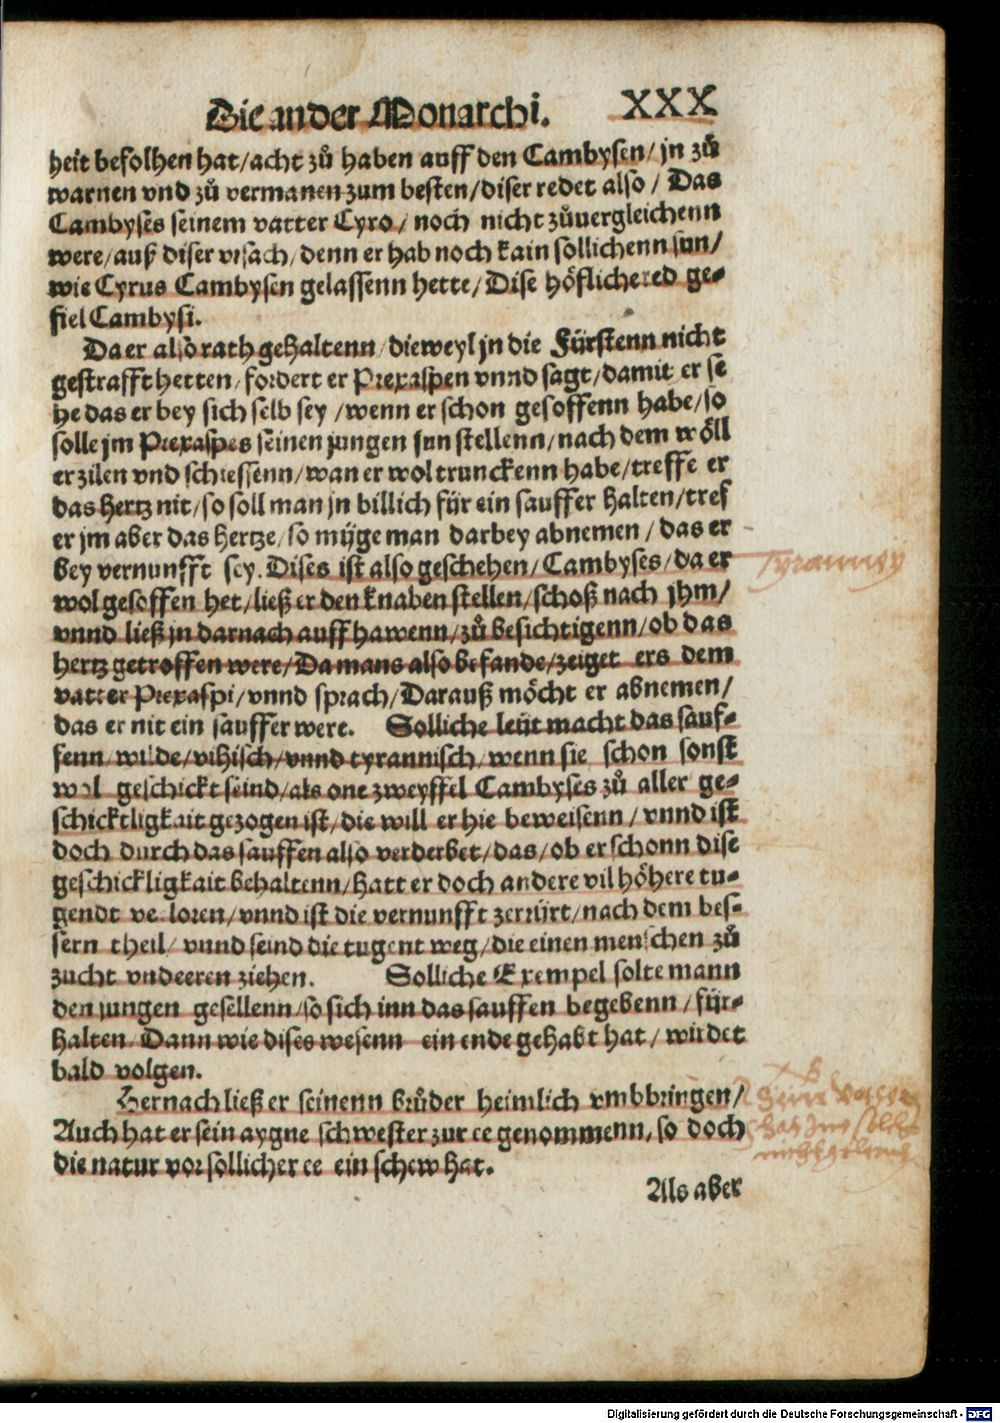 Die ander Monarchi. XXX
heit befolhen hat/acht zů haben auff den Cambysen/ jn zů
warnen vnd zů vermanen zum besten/diser redet also / Das
Cambyses seinem vatter Cyro/ noch nicht zůuergleichenn
were/auß diser vrsach/denn er hab noch kain sollichenn sun/
wie Cyrus Cambysen gelassenn hette/ Dise höfliche red ge-
fiel Cambysi.
Da er also rath gehaltenn/dieweyl jn die Fürstenn nicht
gestrafft hetten/fordert er Prexaspen vnnd sagt/damit er se
he das er bey sich selb sey /wenn er schon gesoffenn habe/so
solle jm Prexaspes seinen jungen sun stellenn/nach dem wöll
er zilen vnd schiessenn/wan er wol trunckenn habe/treffe er
das hertz nit/so soll man jn billich für ein sauffer halten/tref
er jm aber das hertze/so müge man darbey abnemen / das er
bey vernunfft sey. Dises ist also geschehen/Cambyses/da er
wol gesoffen het/ließ er den knaben stellen/schoß nach jhm/
vnnd ließ jn darnach auff hawenn/zů besichtigenn/ob das
hertz getroffen were/Da mans also befande/zeiget ers dem
vatter Prexaspi/vnnd sprach/Darauß möcht er abnemen/
das er nit ein sauffer were. Solliche leüt macht das sauf-
fenn/wilde/vihisch/vnnd tyrannisch/wenn sie schon sonst
wol geschickt seind/als one zweyffel Cambyses zů aller ge-
schicktligkait gezogen ist/die will er hie beweisenn/vnnd ist
doch durch das sauffen also verderbet/das/ob er schonn dise
geschickligkait behaltenn/hatt er doch andere vil höhere tu-
gendt verloren/vnnd ist die vernunfft zerrürt/nach dem bes-
sern theil/ vnnd seind die tugent weg/die einen menschen zů
zucht vnd eeren ziehen. Solliche Exempel solte mann
den jungen gesellenn/so sich inn das sauffen begebenn/für-
halten. Dann wie dises wesenn ein ende gehabt hat/ würdet
bald volgen.
Hernach ließ er seinenn brůder heimlich vmbbringen/
Auch hat er sein aygne schwester zur ee genommenn, so doch
die natur vor sollicher ee ein schew hat.
Als aber
Tyranney
Digitalisierung gefördert durch die Deutsche Forschungsgemeinschaft - DFG